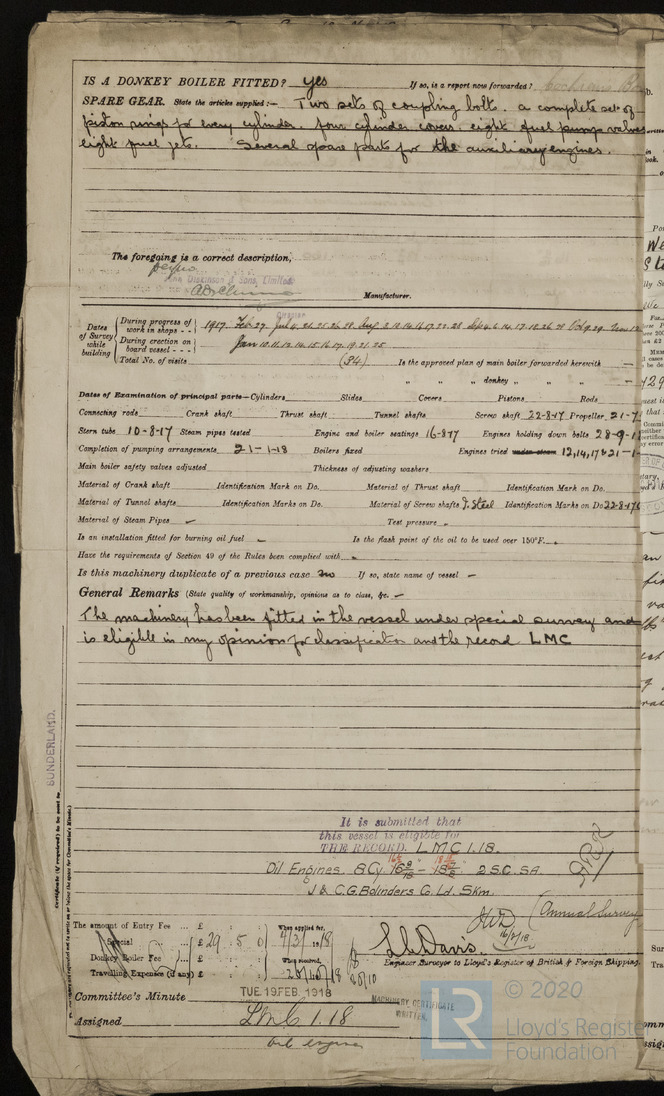 IS A DONKEY BOILER FITTED? yes If so, is a report now forwarded?
SPARE GEAR. State the articles supplied:— Two sets of coupling bolts. a complete set of
piston rings for every cylinder. four cylinder covers. eight fuel pump valves
eight fuel jets. Several spare parts for the auxiliary engines.
The foregoing is a correct description,
Dickinson & Sons, Limited
Manufacturer.
Dates of Survey while building
During progress of work in shops - - 1917. Feb 27. July
During erection on board vessel - - - Jan 10.11.12.14.15.16.17.19.21.25
Total No. of visits (34) Is the approved plan of main boiler forwarded herewith —
" " " donkey " " " —
Dates of Examination of principal parts—Cylinders Slides Covers Pistons Rods
Connecting rods Crank shaft Thrust shaft Tunnel shafts Screw shaft 22-8-17 Propeller 21-7
Stern tube 10-8-17 Steam pipes tested Engine and boiler seatings 16-8-17 Engines holding down bolts 28-9-1
Completion of pumping arrangements 21-1-18 Boilers fixed Engines tried under steam 12,14,17 & 21-1-
Main boiler safety valves adjusted Thickness of adjusting washers
Material of Crank shaft Identification Mark on Do. Material of Thrust shaft Identification Mark on Do.
Material of Tunnel shafts Identification Marks on Do. Material of Screw shafts I. Steel Identification Marks on Do. 22-8-17
Material of Steam Pipes — Test pressure —
Is an installation fitted for burning oil fuel — Is the flash point of the oil to be used over 150°F. —
Have the requirements of Section 49 of the Rules been complied with —
Is this machinery duplicate of a previous case no If so, state name of vessel —
General Remarks (State quality of workmanship, opinions as to class, &c. —
The machinery has been fitted in the vessel under special survey and
is eligible in my opinion for classification and the record LMC
SUNDERLAND.
It is submitted that
this vessel is eligible for
THE RECORD. LMC 1.18.
Oil Engines 8 Cy. 2 S.C. SA.
J & C.G. Bolinders Co. Ld. Skm.
(Annual Survey
16/2/18
The amount of Entry Fee ... £ : : When applied for,
Special ... £ 29 : 5 : 0 4/3/1918
Donkey Boiler Fee ... £ : : When received,
Travelling Expenses (if any) £ : :
L. C. Davis.
Engineer Surveyor to Lloyd's Register of British & Foreign Shipping.
Committee's Minute TUE. 19 FEB. 1918
MACHINERY CERTIFICATE
WRITTEN
Assigned LMC 1.18
oil engine
© 2020
LR
Lloyd's Register
Foundation